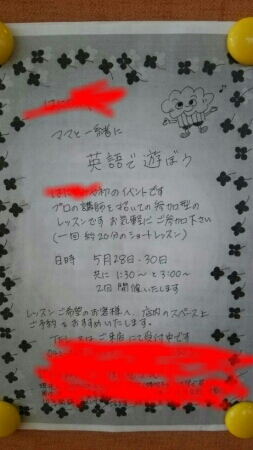 ママと一緒に
英語で遊ぼう
初のイベントです
プロの講師を招いての参加型の
レッスンです お気軽にご参加下さい
(一回 約20分のショートレッスン)
日時 5月28日・30日
共に 1:30〜 と 3:00〜
2回 開催いたします
レッスンご希望のお客様へ、店内のスペース上
ご予約をおすすめいたします。
ご来店にて受付中です